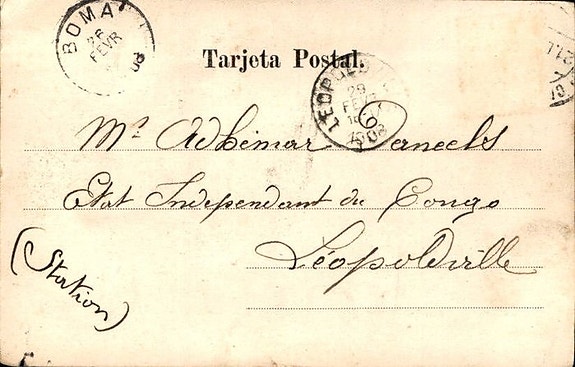 BOMA
26
FEVR
Tarjeta Postal.
LEOPOLD
29
FEVR
Mr Adhémar
Etat Independant du Congo
Léopoldville
(Station)